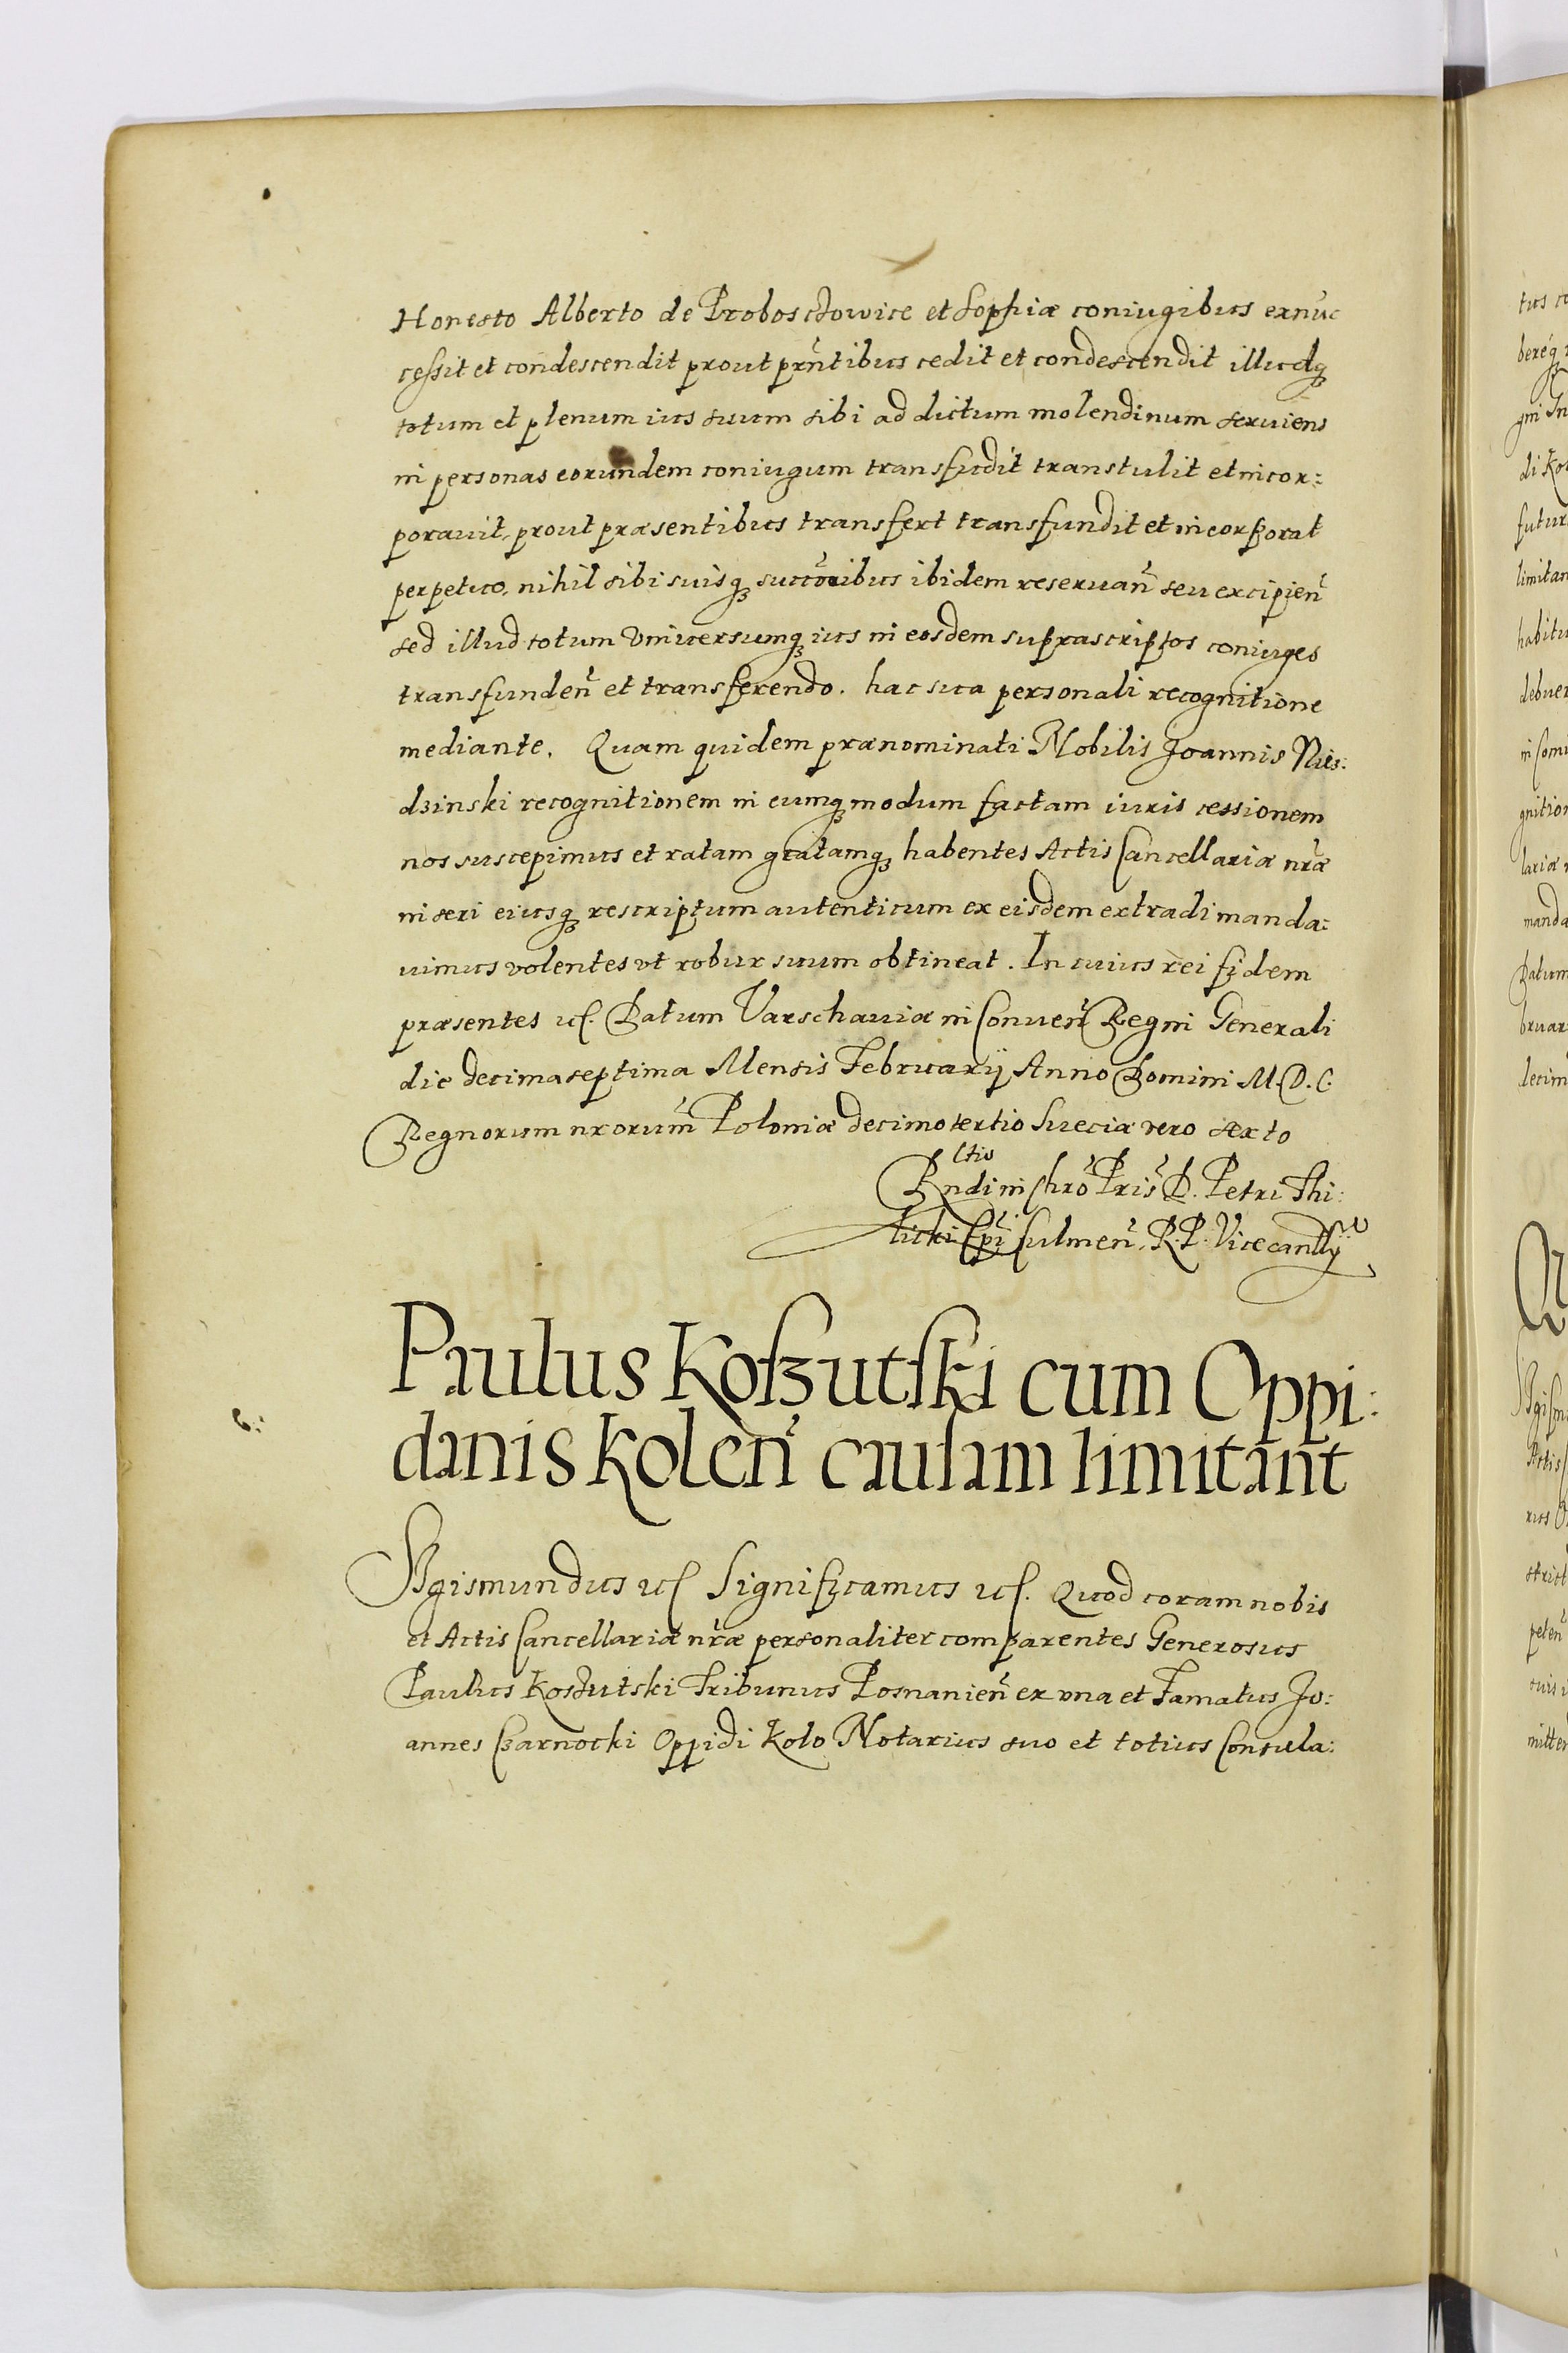 Honesto Alberto de Proboszczowice et Sophiæ coniugibus exnuc
cessit et condescendit prout prñtibus cedit et condescendit illudq;
totum et plenum ius suum sibi ad dictum molendinum seruiens
in personas eorundem coniugum transfudit transtulit et incor:
porauit, prout præsentibus transfert transfundit et incorporat
perpetuo, nihil sibi suisq; succõribus ibidem reseruan̄ seu excipien̄
sed illud totum vniuersumq; ius in eosdem suprascriptos coniuges
transfunden̄ et transferendo. hac sua personali recognitione
mediante. Quam quidem prænominati Nobilis Joannis Nies:
dzinski recognitionem in eumq; modum factam iuris cessionem
nos suscepimus et ratam gratamq; habentes Actis Cancellariæ nr̃æ
inseri eiusq; rescriptum autenticum ex eisdem extradi manda:
uimus volentes vt robur suum obtineat. In cuius rei fidem
præsentes etc. Datum Varschauiæ in Conuen̄ Regni Generali
die decima septima Mensis Februarij Anno Domini M.D.C.
Regnorum nrorum̄ Poloniæ decimotertio Sueciæ vero sexto
Rndi in Chrō Pris̄ D. Petri Thi:
licki Epī Culmen̄. R.P. Vicecancllÿ
Paulus Koszutski cum Oppi:
danis Kolen̄ causam limitant
Sigismundus etc Significamus etc. Quod coram nobis
et Actis Cancellariæ nr̃æ personaliter comparentes Generosus
Paulus Koszutski Tribunus Posnanien̄ ex vna et Famatus Jo:
annes Czarnocki Oppidi Kolo Notarius suo et totius Consula: